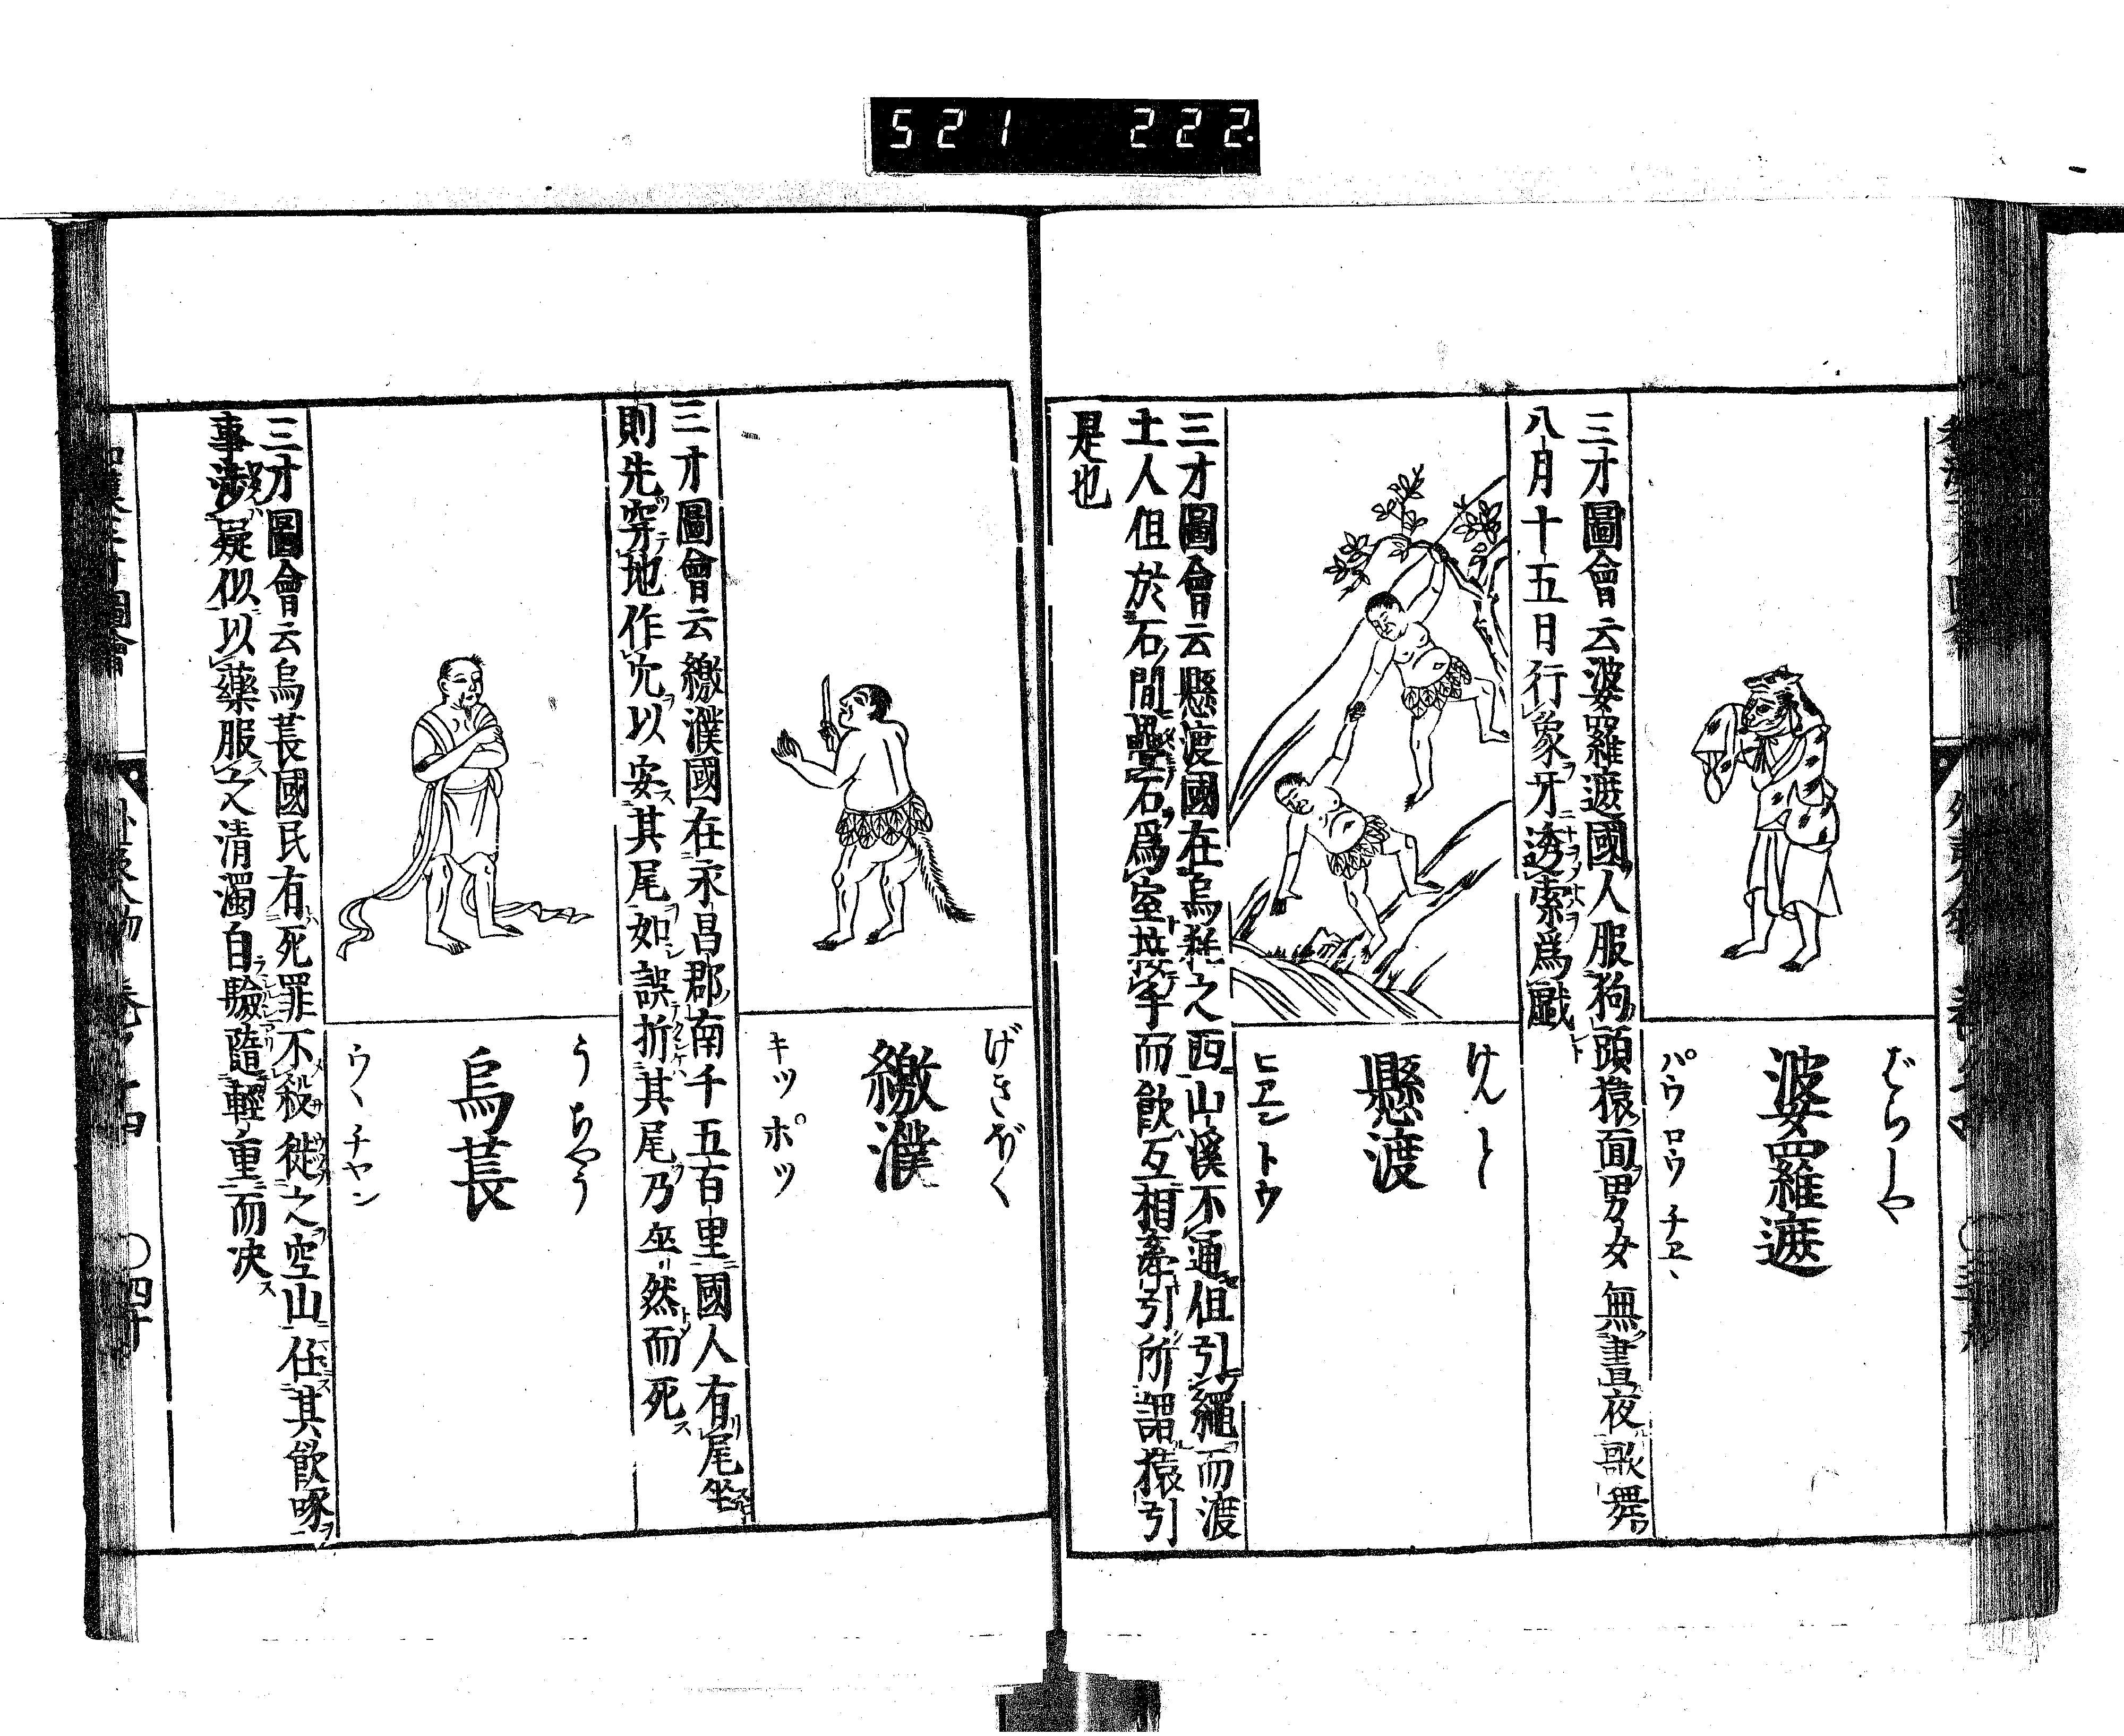 521 222.
ばらしや
婆羅遮
パウ ロウ チヱヽ
三才圖會云婆羅遮國人服狗頭猿面男女無晝夜歌舞
八月十五日行象牙透索爲戯
けんと
懸渡
ヒヱントウ
三才圖會云懸渡國在烏秅之西山溪不通但引繩而渡
土人但於石間壘石爲室接手而飮互相牽引所謂猿引
是也
げきぼく
繳濮
キツ ポツ
三才圖會云繳濮國在永昌郡南千五百里國人有尾坐
則先穿地作穴以安其尾如誤折其尾乃卒然而死
うちやう
烏萇
ウヽ チヤン
三才圖會云烏萇國民有死罪不殺徙之空山任其飮啄
事涉疑似以藥服之清濁自驗隨輕重而决